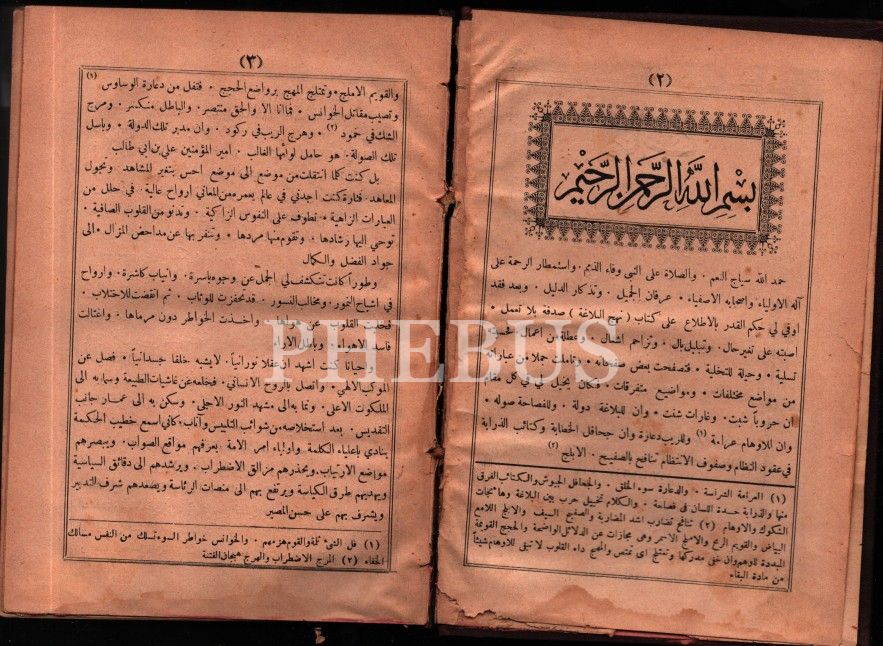 (٢)
بسم الله الرحمن الرحيم
حمد الله سياج النعم ۰ والصلاة على النبي وفاء الذمم ۰ واستمطار الرحمة على
آله الاولياء واصحابه الاصفياء ۰ عرفان الجميل ۰ وتذكار الدليل ۰ وبعد فقد
اوفي لي حكم القدر بالاطلاع على كتاب ( نهج البلاغة ) صدفة بلا تعمل ۰
اصبته على تغير حال ۰ وتبلبل بال ۰ وتزاحم اشغال ۰ وعطلة من اعمال فحسبته
تسلية ۰ وحيلة للتخلية ۰ فتصفحت بعض صفحاته ۰ وتاملت جملا من عباراته
من مواضع مختلفات ۰ ومواضيع متفرقات ۰ وكان يخيل لي في كل مقام
ان حروبا شبت ۰ وغارات شنت ۰ وان للبلاغة دولة ۰ وللفصاحة صوله ۰
وان للاوهام عرامة (١) وللريب دعارة وان جحافل الخطابة وكتائب الذرابة
في عقود النظام وصفوف الانتظام تنافح بالصفيح ۰ الابلج (٢)
(١) العرامة الشراسة ۰ والدعارة سوء الخلق ۰ والجحافل الجيوش والكتائب الفرق
منها والذرابة حدة اللسان في فصاحة ۰ والكلام تخييل حرب بين البلاغة وهائجات
الشكوك والاوهام (٢) تنافح تضارب اشد المضاربة والصفيح السيف والابلج اللامع
البياض والقويم الرمح والاملج الاسمر وهي مجازات عن الدلائل الواضحة والحجج القويمة
المبددة للوهم وان خفي مدركها وتمتلج اي تمتص والمهج دماء القلوب لا تبقي للاوهام شيئاً
من مادة البقاء
(٣)
والقويم الاملج ۰ وتمتلج المهج برواضع الحجج ۰ فتفل من دعارة الوساوس (١)
وتصيب مقاتل الخوانس ۰ فما انا الا والحق منتصر ۰ والباطل منكسر ۰ ومرج
الشك في خمود (٢) ۰ وهرج الريب في ركود ۰ وان مدبر تلك الدولة ۰ وباسل
تلك الصولة ۰ هو حامل لوائها الغالب ۰ امير المؤمنين علي بن ابي طالب
بل كنت كلما انتقلت من موضع الى موضع احس بتغير المشاهد ۰ وتحول
المعاهد ۰ فتارة كنت اجدني في عالم يعمره من المعاني ارواح عالية ۰ في حلل من
العبارات الزاهية ۰ تطوف على النفوس الزاكية ۰ وتدنو من القلوب الصافية ۰
توحي اليها رشادها ۰ وتقوم منها مردها ۰ وتنفر بها عن مداحض المزال ۰ الى
جواد الفضل والكمال
وطورا كانت تتكشف لي الجمل عن وجوه باسرة ۰ وانياب كاشرة ۰ وارواح
في اشباح النمور ۰ ومخالب النسور ۰ قد تحفزت للوثاب ۰ ثم انقضت للاختلاب ۰
فخلبت القلوب عن هواها ۰ واخذت الخواطر دون مرماها ۰ واغتالت
فاسد الاهواء ۰ وباطل الاراء
واحيانا كنت اشهد ان عقلا نورانياً ۰ لا يشبه خلقا جسدانياً ۰ فصل عن
الموكب الالهي ۰ واتصل بالروح الانساني ۰ فخلعه عن غاشيات الطبيعة وسما به الى
الملكوت الاعلى ۰ ونما به الى مشهد النور الاجلى ۰ وسكن به الى عمار جانب
التقديس ۰ بعد استخلاصه من شوائب التلبيس ۰ وآنات كاني اسمع خطيب الحكمة
ينادي باعلياء الكلمة ۰ واولياء امر الامة يعرفهم مواقع الصواب ۰ ويبصرهم
مواضع الارتياب ۰ ويحذرهم مزالق الاضطراب ۰ ويرشدهم الى دقائق السياسية
ويهديهم طرق الكياسة ويرتفع بهم الى منصات الرئاسة ويصعدهم شرف التدبير
ويشرف بهم على حسن المصير
(١) فل الشيء ثلمه والقوم هزمهم ۰ والخوانس خواطر السوء تسلك من النفس مسالك
الخفاء (٢) المرج الاضطراب والهرج هيجان الفتنة
PHEBUS